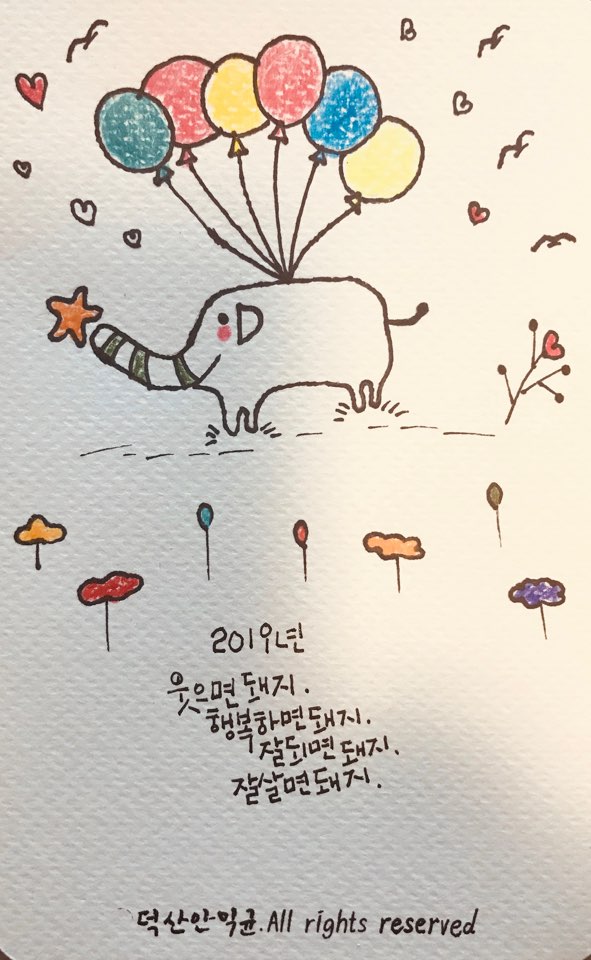 2019년
웃으면돼지.
행복하면돼지.
잘되면돼지.
잘살면돼지.
덕산안익균.All rights reserved